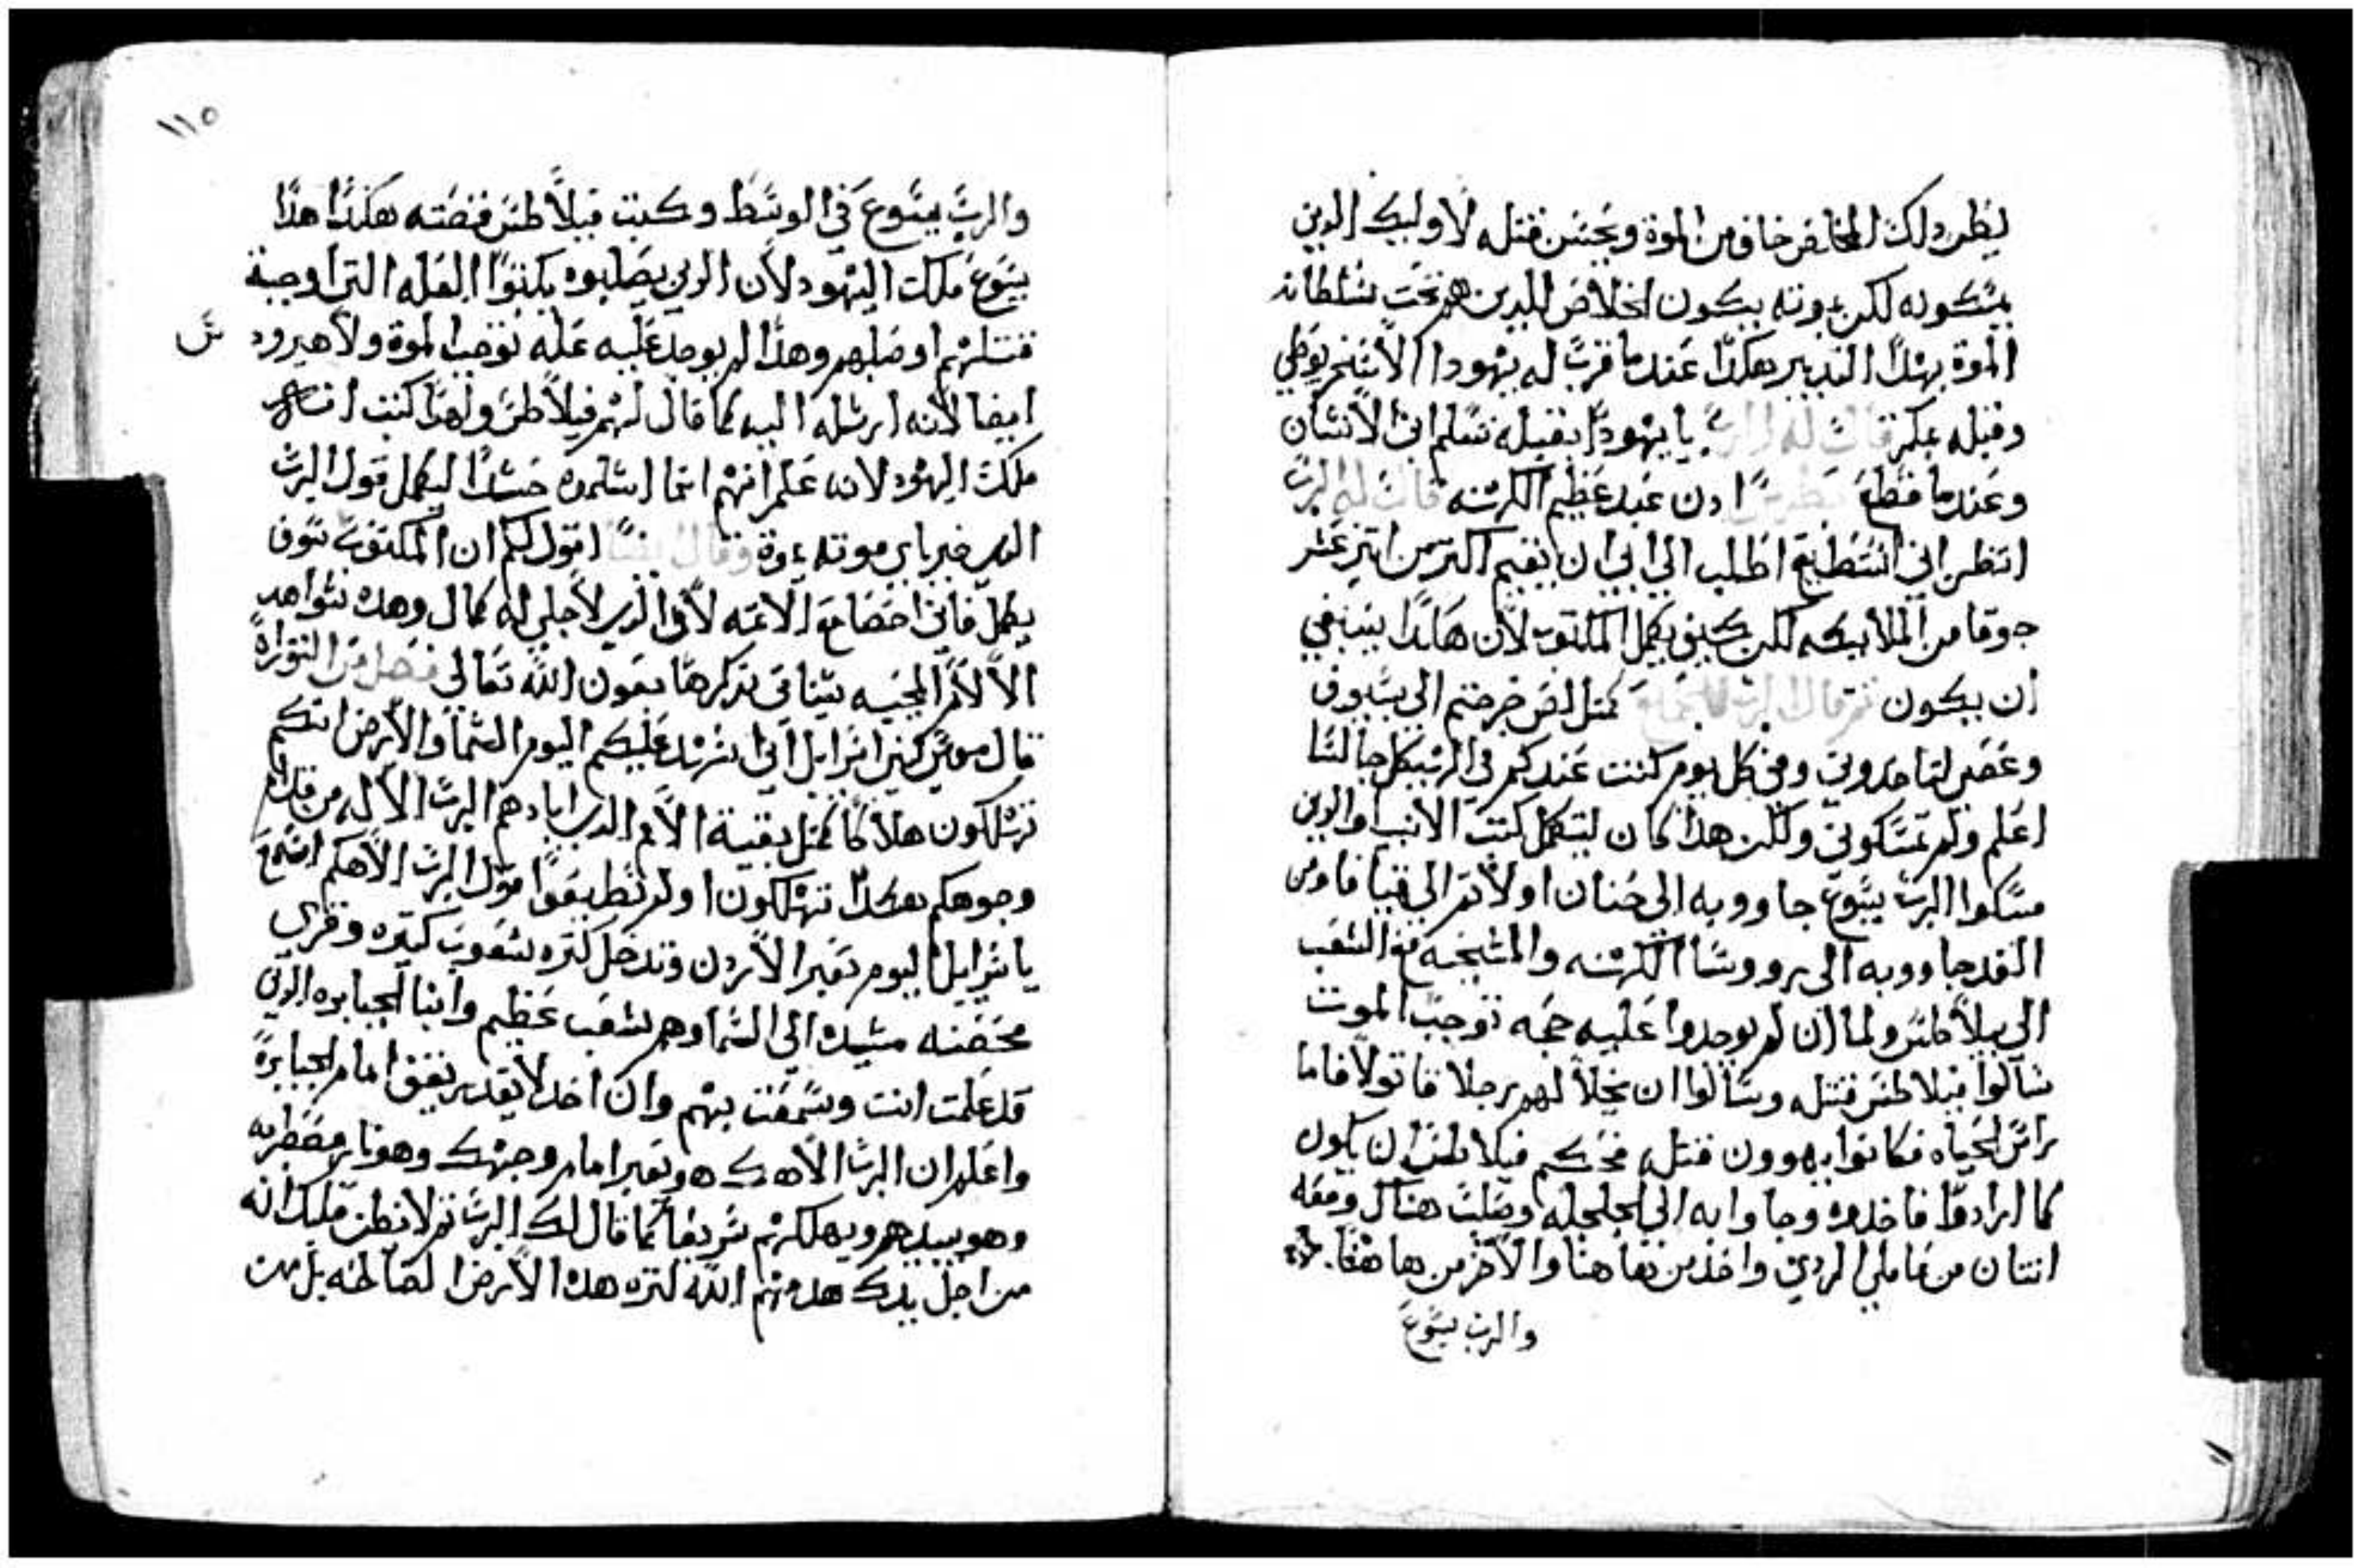 ليظن دلك المخالف خاف من الموة ويحسن قتله لاوليك الدين
يمسكونه لكن بموته يكون الخلاص للدين هم تحت سلطانه
الموة بهدا التدبير هكدا عندما قرب له يهودا الاسخريوطي
وقبله بمكر قال له الرب يا يهودا بقبله تسلم ابن الانسان
وعندما قطع بطرس ادن عبد عظيم الكهنه قال له الرب
اتظن اني استطيع اطلب الي ابي ان يقيم اكتر من اتني عشر
جوقا من الملايكه لكن يكمل المكتوب لان هاكدا ينبغي
ان يكون ثم قال الرب للجماعة كمتل لص خرجتم الي بسيوف
وعصي لتاخدوني وفي كل يوم كنت عندكم في الهيكل جالسا
اعلم ولم تمسكوني ولكن هدا كان لتكمل كتب الانبيا والدين
مسكوا الرب يسوع جاووبه الي حنان اولا تم الي قيافا ومن
الغد جاووبه الي رووسا الكهنه والمشيخه مع الشعب
الي بيلاطس ولما ان لم يوجدوا عليه حجه توجب الموت
سالوا فيلاطس قتله وسالوا ان يخلا لهم رجلا قاتولا فاما
راس الحياه فكانوا يهوون قتله فحكم فيلاطس ان يكون
كما ارادوا فاخدوه وجاوا به الي الجلجله وصلب هناك ومعه
اتنان من عاملي الردي واحد من هاهنا والاخر من هاهنا
والرب يسوع
١١٥
والرب يسوع في الوسط وكتب فيلاطس قصته هكدا هدا
يسوع ملك اليهود لان الدين يصلبوه يكتبوا العله التي اوجبة
قتلهم او صلبهم وهدا لم يوجد عليه عله توجب الموة ولا هيرود
ايضا لانه ارسله اليه كما قال لهم فيلاطس ولهدا كتب
ملك اليهود لانه علم انهم انما اسلموه حسدا ليكمل قول الرب
الدي خبر باي موته يموة وقال ايضا اقول لكم ان المكتوب سوف
يكمل في اني احصا مع الاتمه لان الدي لاجلي له كمال وهده شواهد
الالام المحييه سناتي ندكرها بعون الله تعالي فصل من التوراة
قال موسي لبني اسرايل اني اشهد عليكم اليوم السما والارض انكم
تهلكون هلاكا كمتل بقية الامم الدي ابادهم الرب الاله من قدام
وجوهكم هكدا تهلكون اولم تطيعوا قول الرب الاهكم اسمع
يا سرايل اليوم تعبر الاردن وتدخل لتره شعوب كتيره وقري
محصنه مشيده الي السما وهم شعب عظيم وابنا الجبابره الدي
قد علمت انت وسمعت بهم وان احدا لا يقدر يقف امام الجبابرة
واعلم ان الرب الاهك هو يعبر امام وجهك وهو نار مضطرمه
وهو يبيدهم ويهلكهم سريعا كما قال لك الرب تم لا تظن قلبك انه
من اجل برك هده الله لتره هدا الارض الصالحه بل من